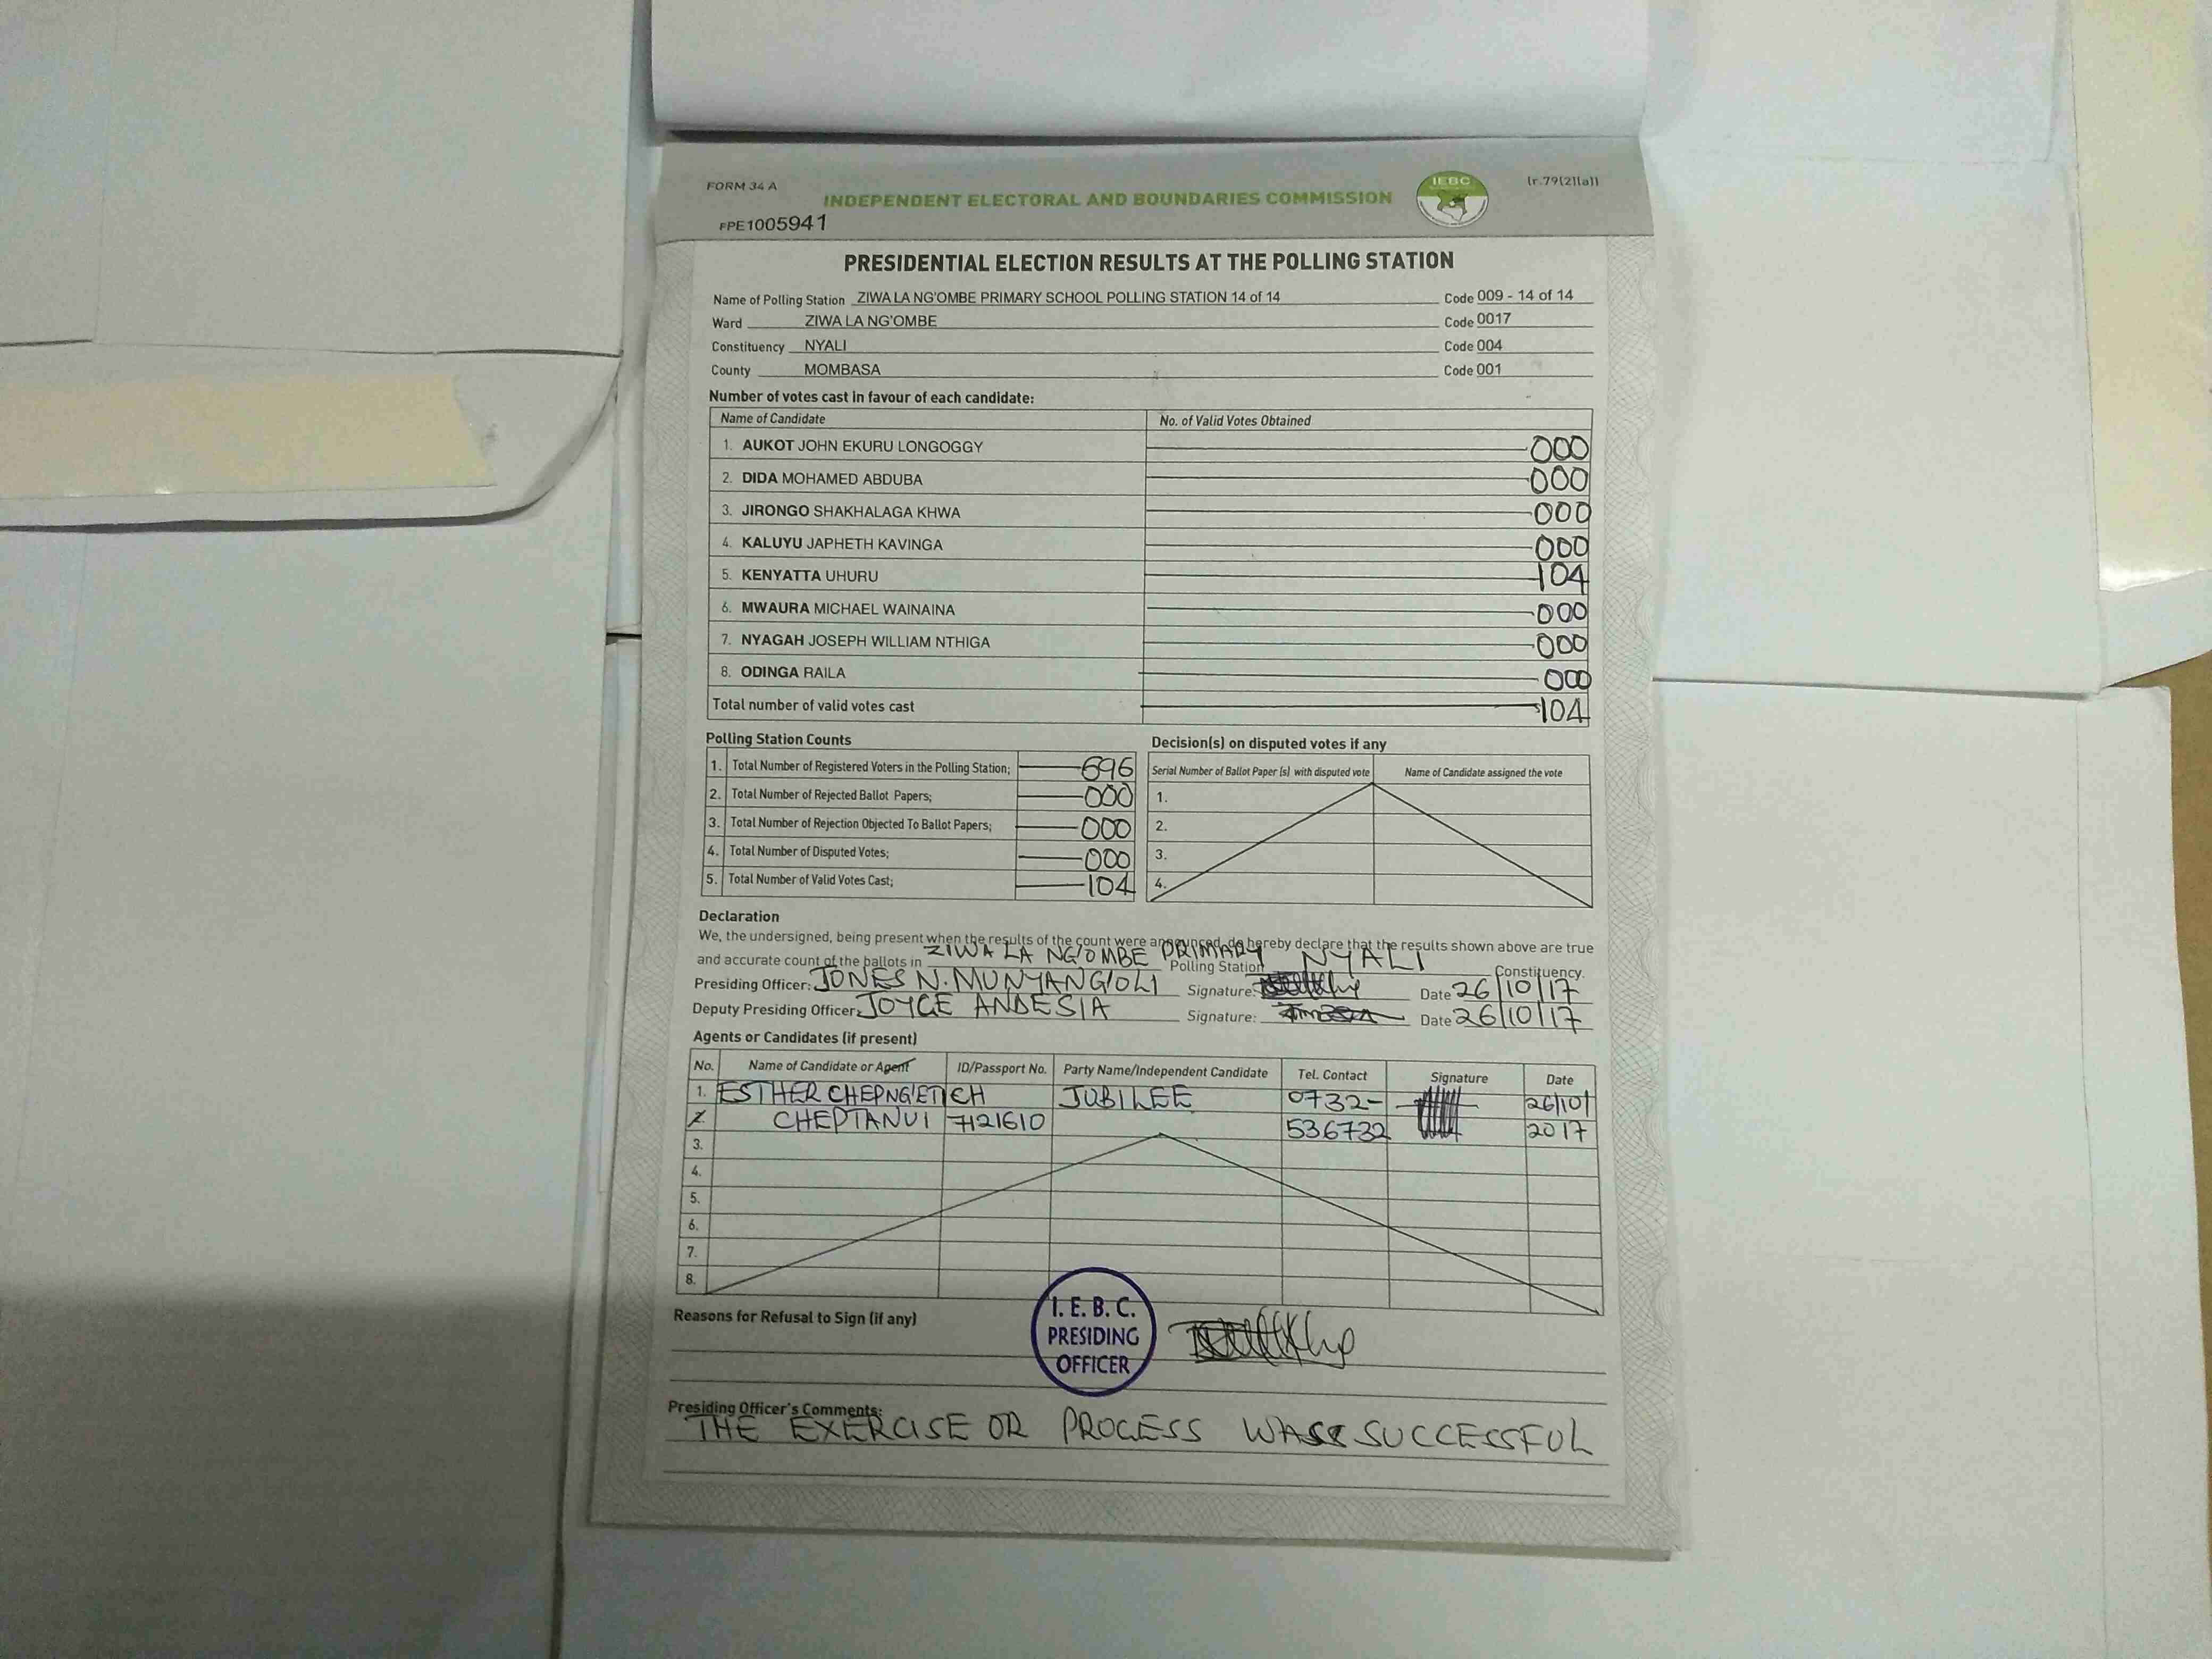 FORM 34 A
INDEPENDENT ELECTORAL AND BOUNDARIES COMMISSION
IEBC
(r.79(2)(a))
FPE1005941
PRESIDENTIAL ELECTION RESULTS AT THE POLLING STATION
Name of Polling Station ZIWA LA NG'OMBE PRIMARY SCHOOL POLLING STATION 14 of 14 Code 009 - 14 of 14
Ward ZIWA LA NG'OMBE Code 0017
Constituency NYALI Code 004
County MOMBASA Code 001
Number of votes cast in favour of each candidate:
Name of Candidate No. of Valid Votes Obtained
1. AUKOT JOHN EKURU LONGOGGY 000
2. DIDA MOHAMED ABDUBA 000
3. JIRONGO SHAKHALAGA KHWA 000
4. KALUYU JAPHETH KAVINGA 000
5. KENYATTA UHURU 104
6. MWAURA MICHAEL WAINAINA 000
7. NYAGAH JOSEPH WILLIAM NTHIGA 000
8. ODINGA RAILA 000
Total number of valid votes cast 104
Polling Station Counts
1. Total Number of Registered Voters in the Polling Station; 696
2. Total Number of Rejected Ballot Papers; 000
3. Total Number of Rejection Objected To Ballot Papers; 000
4. Total Number of Disputed Votes; 000
5. Total Number of Valid Votes Cast; 104
Decision(s) on disputed votes if any
Serial Number of Ballot Paper (s) with disputed vote Name of Candidate assigned the vote
1.
2.
3.
4.
Declaration
We, the undersigned, being present when the results of the count were announced, do hereby declare that the results shown above are true
and accurate count of the ballots in ZIWA LA NG'OMBE PRIMARY Polling Station NYALI Constituency.
Presiding Officer: JONES N. MUNYANG'OLI Signature: Date 26/10/17
Deputy Presiding Officer: JOYCE ANDESIA Signature: Date 26/10/17
Agents or Candidates (if present)
No. Name of Candidate or Agent ID/Passport No. Party Name/Independent Candidate Tel. Contact Signature Date
1. ESTHER CHEPNG'ETICH JUBILEE 0732- 26/10/
2. CHEPTANUI 7121610 536732 2017
3.
4.
5.
6.
7.
8.
Reasons for Refusal to Sign (if any)
I. E. B. C.
PRESIDING
OFFICER
Presiding Officer's Comments:
THE EXERCISE OR PROCESS WAS SUCCESSFUL